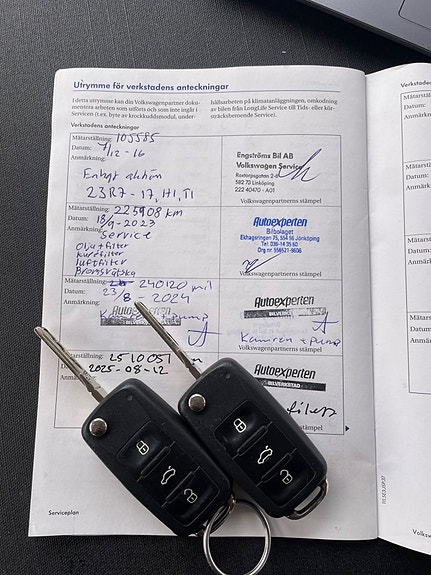 Utrymme för verkstadens anteckningar
I detta utrymme kan din Volkswagenpartner doku-
mentera arbeten som utförts och som inte ingår i
Servicen (t.ex. byte av krockkuddsmodul, under-
hållsarbeten på klimatanläggningen, omkodning
av bilen från LongLife Service till Tids- eller kör-
sträckeberoende Service).
Verkstadens anteckningar
Mätarställning: 105585
Datum: 7/12-16
Anmärkning:
Enligt aktion
23R7-17, H1, T1
Engströms Bil AB
Volkswagen Service
Roxtorpsgatan
582 73 Linköping
222 40470 - A01
Volkswagenpartnerns stämpel
Mätarställning: 225908 km
Datum: 13/9-2023
Anmärkning: Service
Oljefilter
luftfilter
Bromsvätska
Autoexperten
Bilbolaget
Ekhagsringen 75, 554 56 Jönköping
Tel. 036-14 35 60
Org nr. 556521-9606
Volkswagenpartnerns stämpel
Mätarställning: 240120 mil
Datum: 23/8-2024
Anmärkning:
Autoexperten
BILVERKSTAD
Kamrem + pump
Volkswagenpartnerns stämpel
Mätarställning: 2510051
Datum: 2025-08-12
Anmärkning:
Autoexperten
BILVERKSTAD
Serviceplan